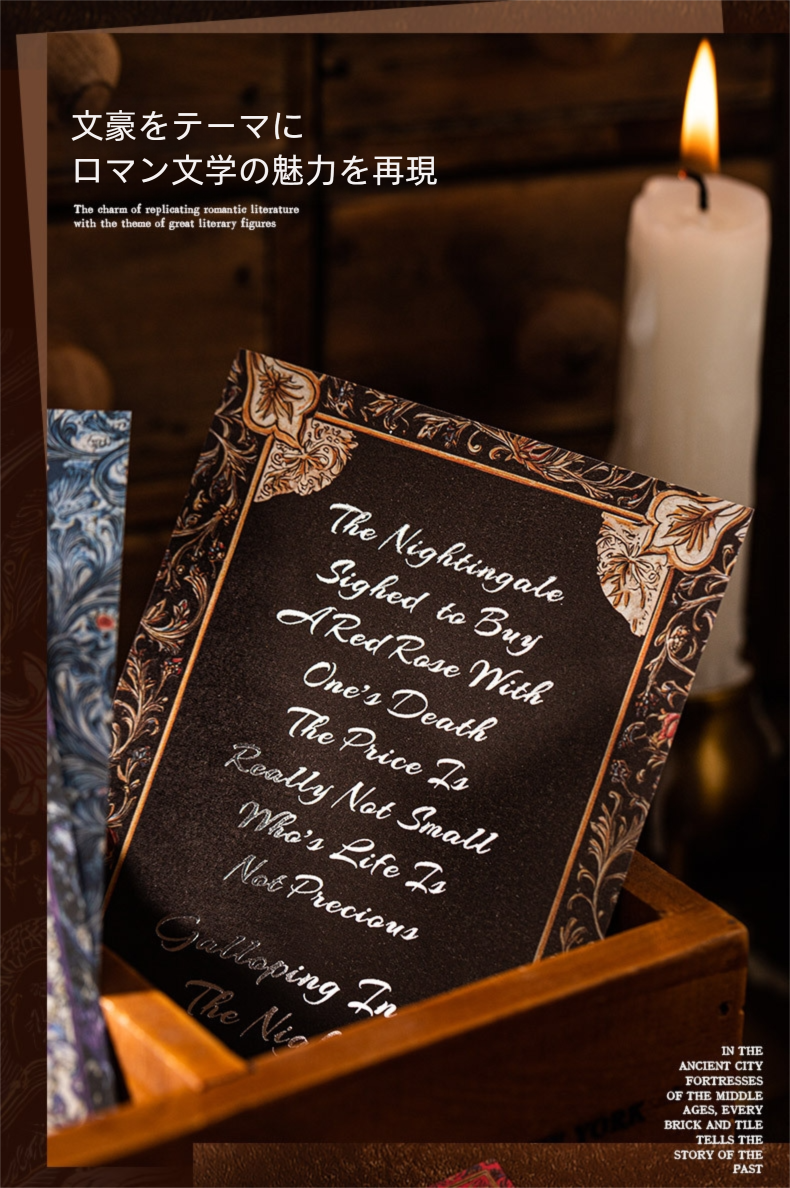 文豪をテーマに
ロマン文学の魅力を再現
The charm of replicating romantic literature
with the theme of great literary figures
The Nightingale
Sighed to Buy
A Red Rose With
One's Death
The Price Is
Really Not Small
Who's Life Is
Not Precious
Galloping In
The
YORK
IN THE
ANCIENT CITY
FORTRESSES
OF THE MIDDLE
AGES, EVERY
BRICK AND TILE
TELLS THE
STORY OF THE
PAST